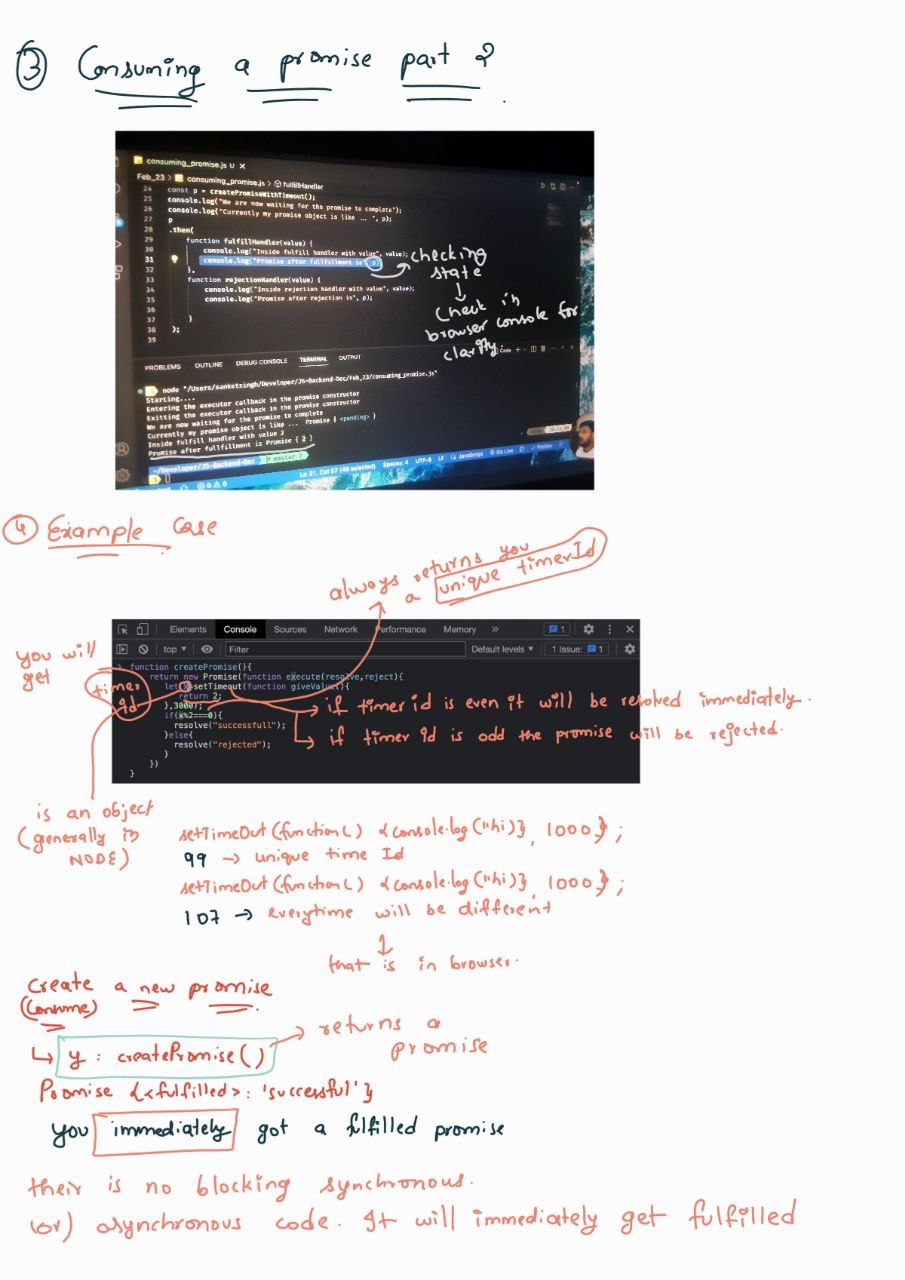 ③ Consuming a promise part 2
consuming_promise.js U X
Feb_23 > consuming_promise.js > fulfillHandler
24 const p = createPromiseWithTimeout();
25 console.log("We are now waiting for the promise to complete");
26 console.log("Currently my promise object is like ... ", p);
27 p
28 .then(
29 function fulfillHandler(value) {
30 console.log("Inside fulfill handler with value", value);
31 console.log("Promise after fullfillment is", p)
32 },
33 function rejectionHandler(value) {
34 console.log("Inside rejection handler with value", value);
35 console.log("Promise after rejection is", p);
36
37 }
38 );
39
checking
state
↓
Check in
browser console for
clarity.
PROBLEMS OUTLINE DEBUG CONSOLE TERMINAL OUTPUT
node "/Users/sanketsingh/Developer/JS-Backend-Dec/Feb_23/consuming_promise.js"
Starting....
Entering the executor callback in the promise constructor
Exitting the executor callback in the promise constructor
We are now waiting for the promise to complete
Currently my promise object is like ... Promise { <pending> }
Inside fulfill handler with value 2
Promise after fullfillment is Promise { 2 }
~/Developer/JS-Backend-Dec master
Ln 31, Col 57 (46 selected) Spaces: 4 UTF-8 LF JavaScript Go Live Prettier
④ Example Case
always returns you
a unique timerId
Elements Console Sources Network Performance Memory »
top ▾ Filter Default levels ▾ 1 Issue: 1
you will
get
timer
id
function createPromise(){
return new Promise(function execute(resolve,reject){
let x=setTimeout(function giveValue(){
return 2;
},3000);
if(x%2===0){
resolve("successfull");
}else{
resolve("rejected");
}
})
}
→ if timer id is even it will be resolved immediately.
→ if timer id is odd the promise will be rejected.
is an object
(generally in
NODE)
setTimeOut(function() {console.log("hi)}, 1000};
99 → unique time Id
setTimeOut(function() {console.log("hi)}, 1000};
107 → everytime will be different
↓
that is in browser.
Create a new promise
(Consume)
↳ y : createPromise() → returns a
promise
Promise {<fulfilled>: 'successful'}
you immediately got a fulfilled promise
their is no blocking synchronous.
(or) asynchronous code. It will immediately get fulfilled